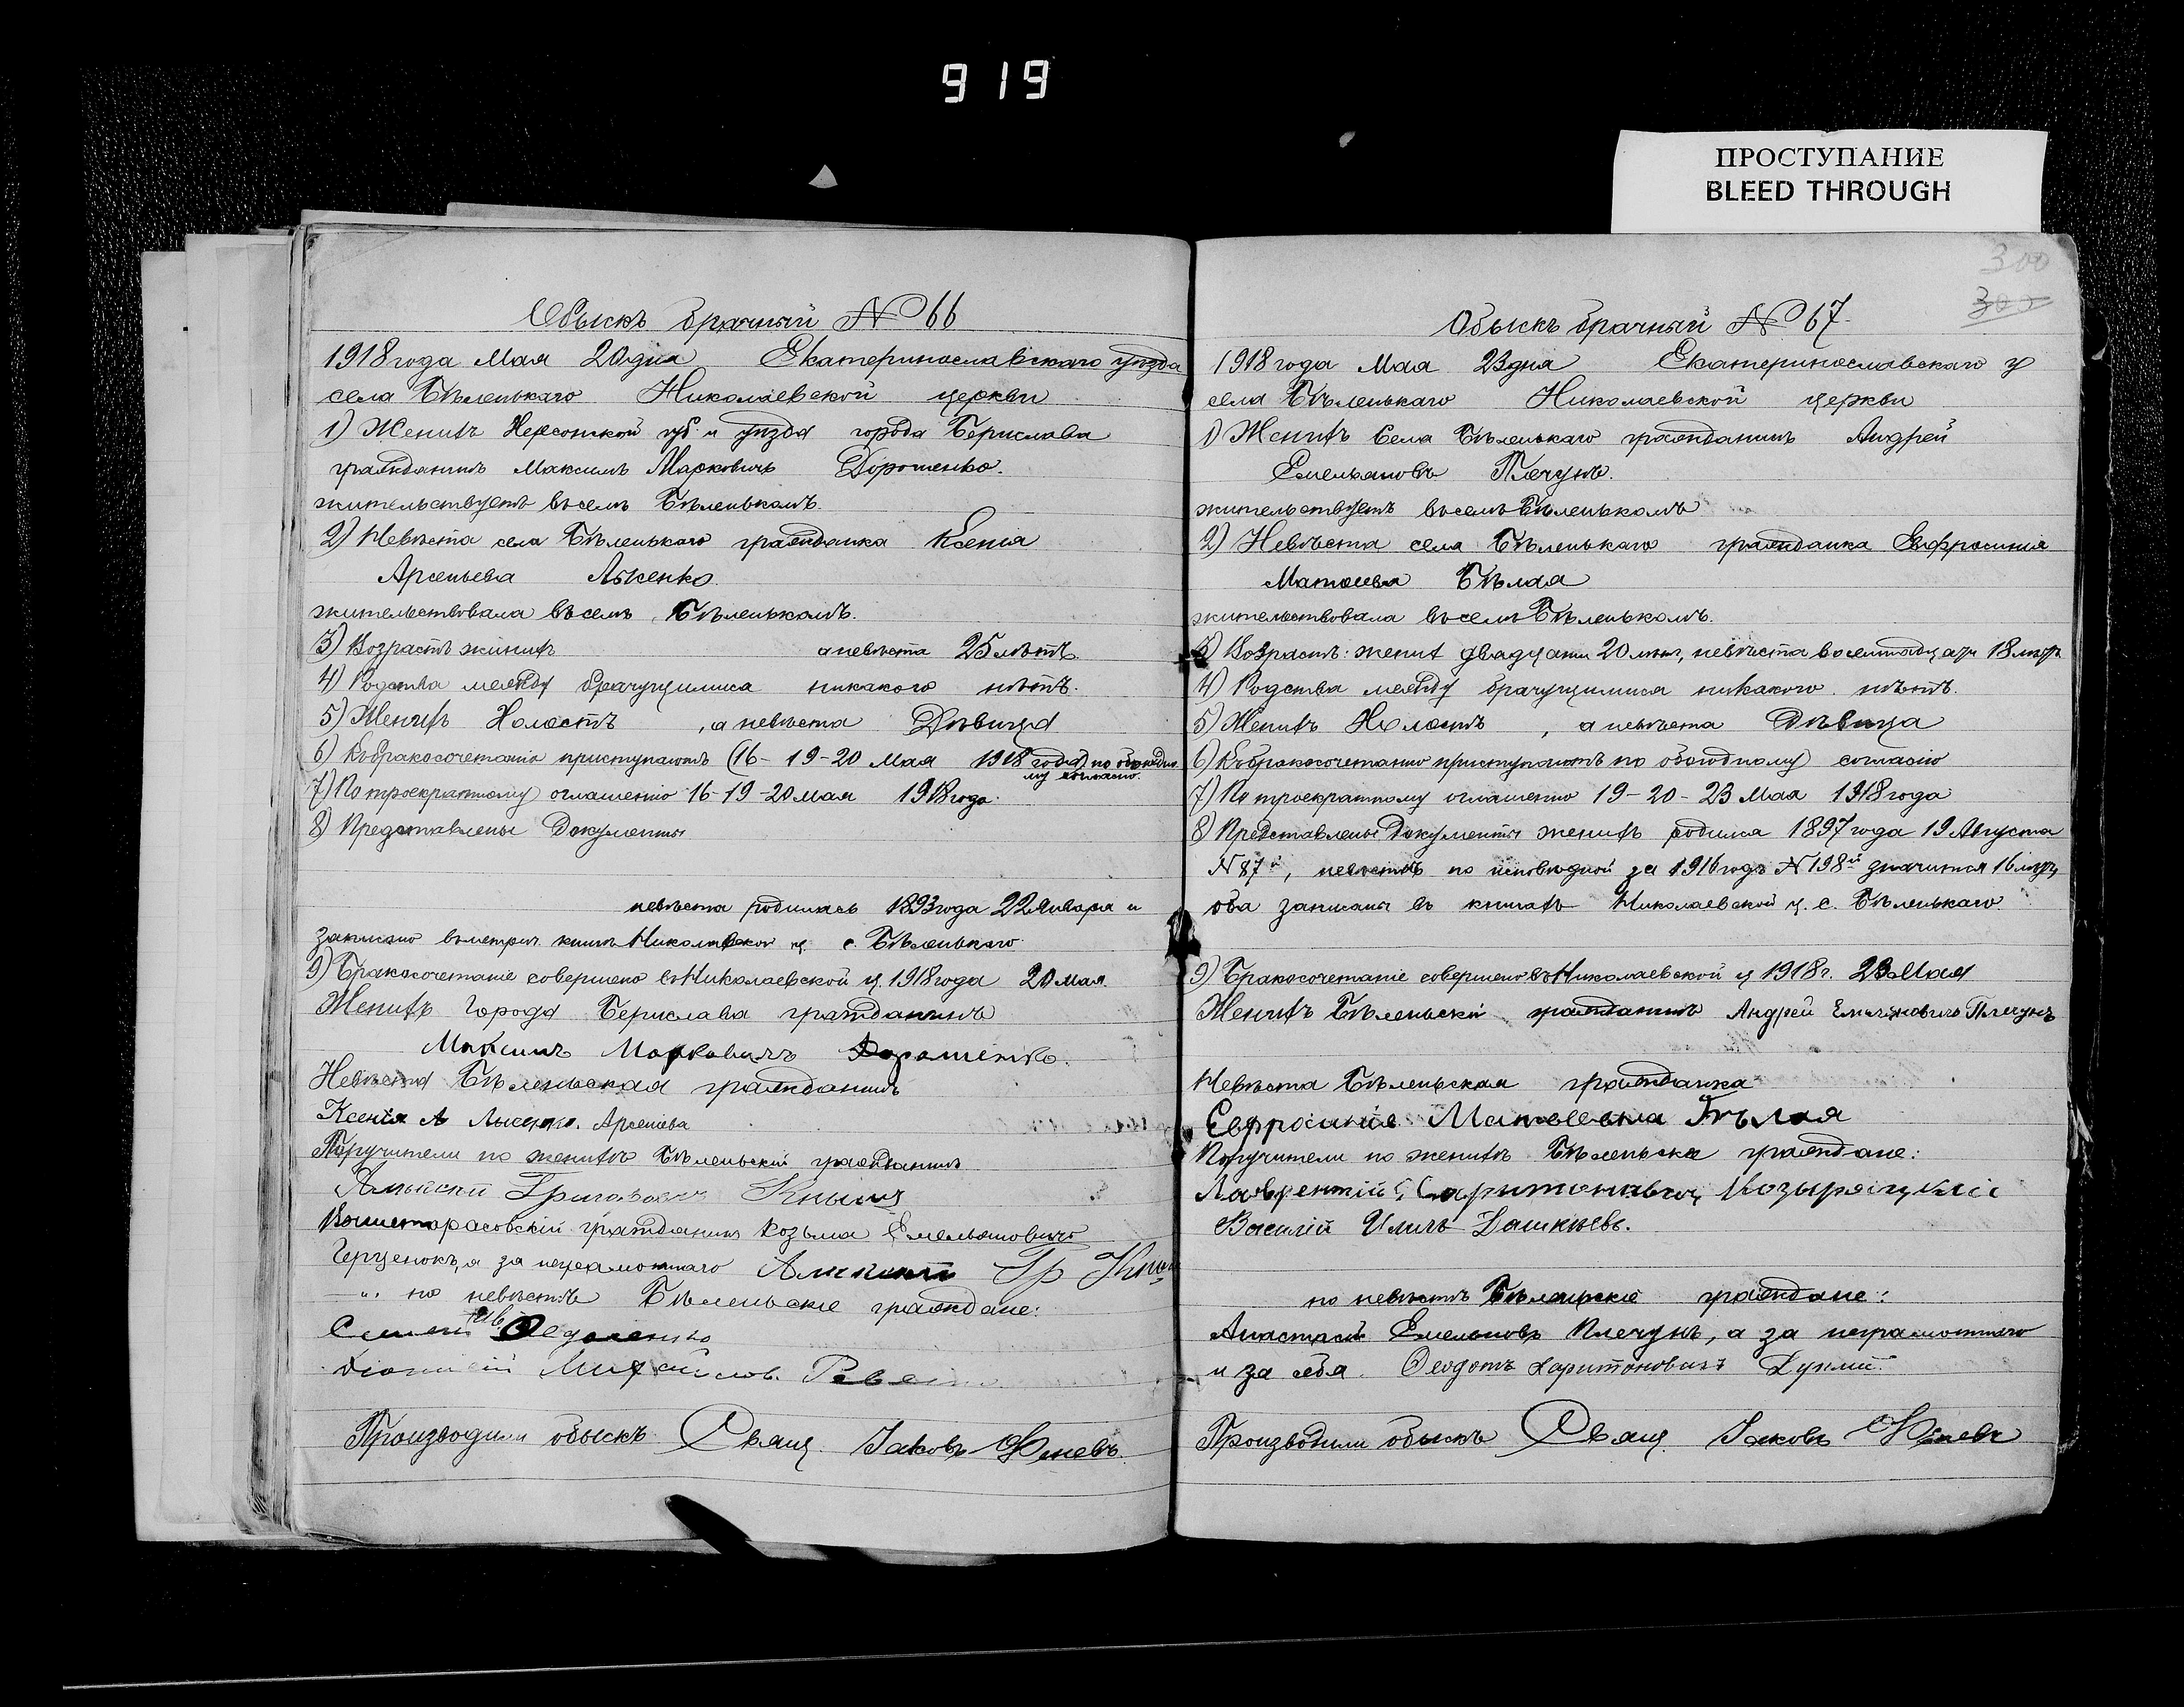 919
ПРОСТУПАНИЕ
BLEED THROUGH
Обыскъ брачный № 66
1918 года Мая 20 дня Екатеринославскаго уѣзда
села Бѣленькаго Николаевской церкви
1) Женихъ Херсонской губ. и уѣзда города Берислава
гражданинъ Максимъ Марковичъ Дорошенко.
жительствуетъ въ селѣ Бѣленькомъ.
2) Невѣста села Бѣленькаго гражданка Ксенія
Арсеньева Лысенко.
жительствовала въ селѣ Бѣленькомъ.
3) Возрастъ жениха а невѣста 25 лѣтъ.
4) Родства между брачущимися никакого нѣтъ.
5) Женихъ Холостъ, а невѣста Дѣвица
6) Къ бракосочетанію приступаютъ (16-19-20 Мая 1918 года) по обоюдно
му согласію.
7) По троекратному оглашенію 16-19-20 мая 1918 года.
8) Представлены Документы
невѣста родилась 1893 года 22 Января и
записано въ метрич. книгѣ Николаевской ц. с. Бѣленькаго.
9) Бракосочетаніе совершено въ Николаевской ц. 1918 года 20 мая.
Женихъ Города Берислава гражданинъ
Максимъ Марковичъ Дорошенко.
Невѣста Бѣленьская гражданинъ
Ксенія А Лысенко. Арсенева
Поручители по женихѣ Бѣленьскій гражданинъ
Григоровичъ Кнышъ
гражданинъ Козьма Емельяновичъ
а за неграмотнаго Гр
" по невѣстѣ Бѣленьскіе граждане:
Семенъ Ив. Федоренко
Михайлов.
Производили обыскъ Свящ. Іаковъ
300
300
Обыскъ брачный № 67.
1918 года Мая 23 дня Екатеринославскаго у
села Бѣленькаго Николаевской церкви
1) Женихъ Села Бѣленькаго гражданинъ Андрей
Емельяновъ Плечунъ.
жительствуетъ въ селѣ Бѣленькомъ
2) Невѣста села Бѣленькаго гражданка Евфросинія
Матѳеева Бѣлая
жительствовала въ селѣ Бѣленькомъ.
3) Возрастъ: жених двадцати 20 лѣт, невѣста восемнадцати 18 лѣтъ
4) Родства между брачущимися никакого нѣтъ.
5) Женихъ Холостъ, а невѣста Дѣвица
6) Къ бракосочетанію приступаютъ по обоюдному согласію
7) По троекратному оглашенію 19-20-23 Мая 1918 года
8) Представлены Документы женихъ родился 1897 года 19 Августа
N 87й, невѣста по исповѣдной за 1916 годъ N 198й значится 16 лѣтъ,
оба записаны въ книгахъ Николаевской ц. с. Бѣленькаго.
9) Бракосочетаніе совершено въ Николаевской ц 1918 г. 23 Мая
Женихъ Бѣленьскій гражданинъ Андрей Емельяновичъ Плечунъ
Невѣста Бѣленьская гражданка
Евфросинія Матвеевна Бѣлая
Поручители по женихѣ Бѣленьскіе граждане:
Лаврентій Харитоновичъ
Василій Иличъ Дашкѣевъ.
по невѣстѣ Бѣленьскіе граждане:
Емельяновъ Плечунъ, а за неграмотнаго
и за себя Ѳеодотъ Харитоновичъ
Производили обыскъ Свящ. Іаковъ